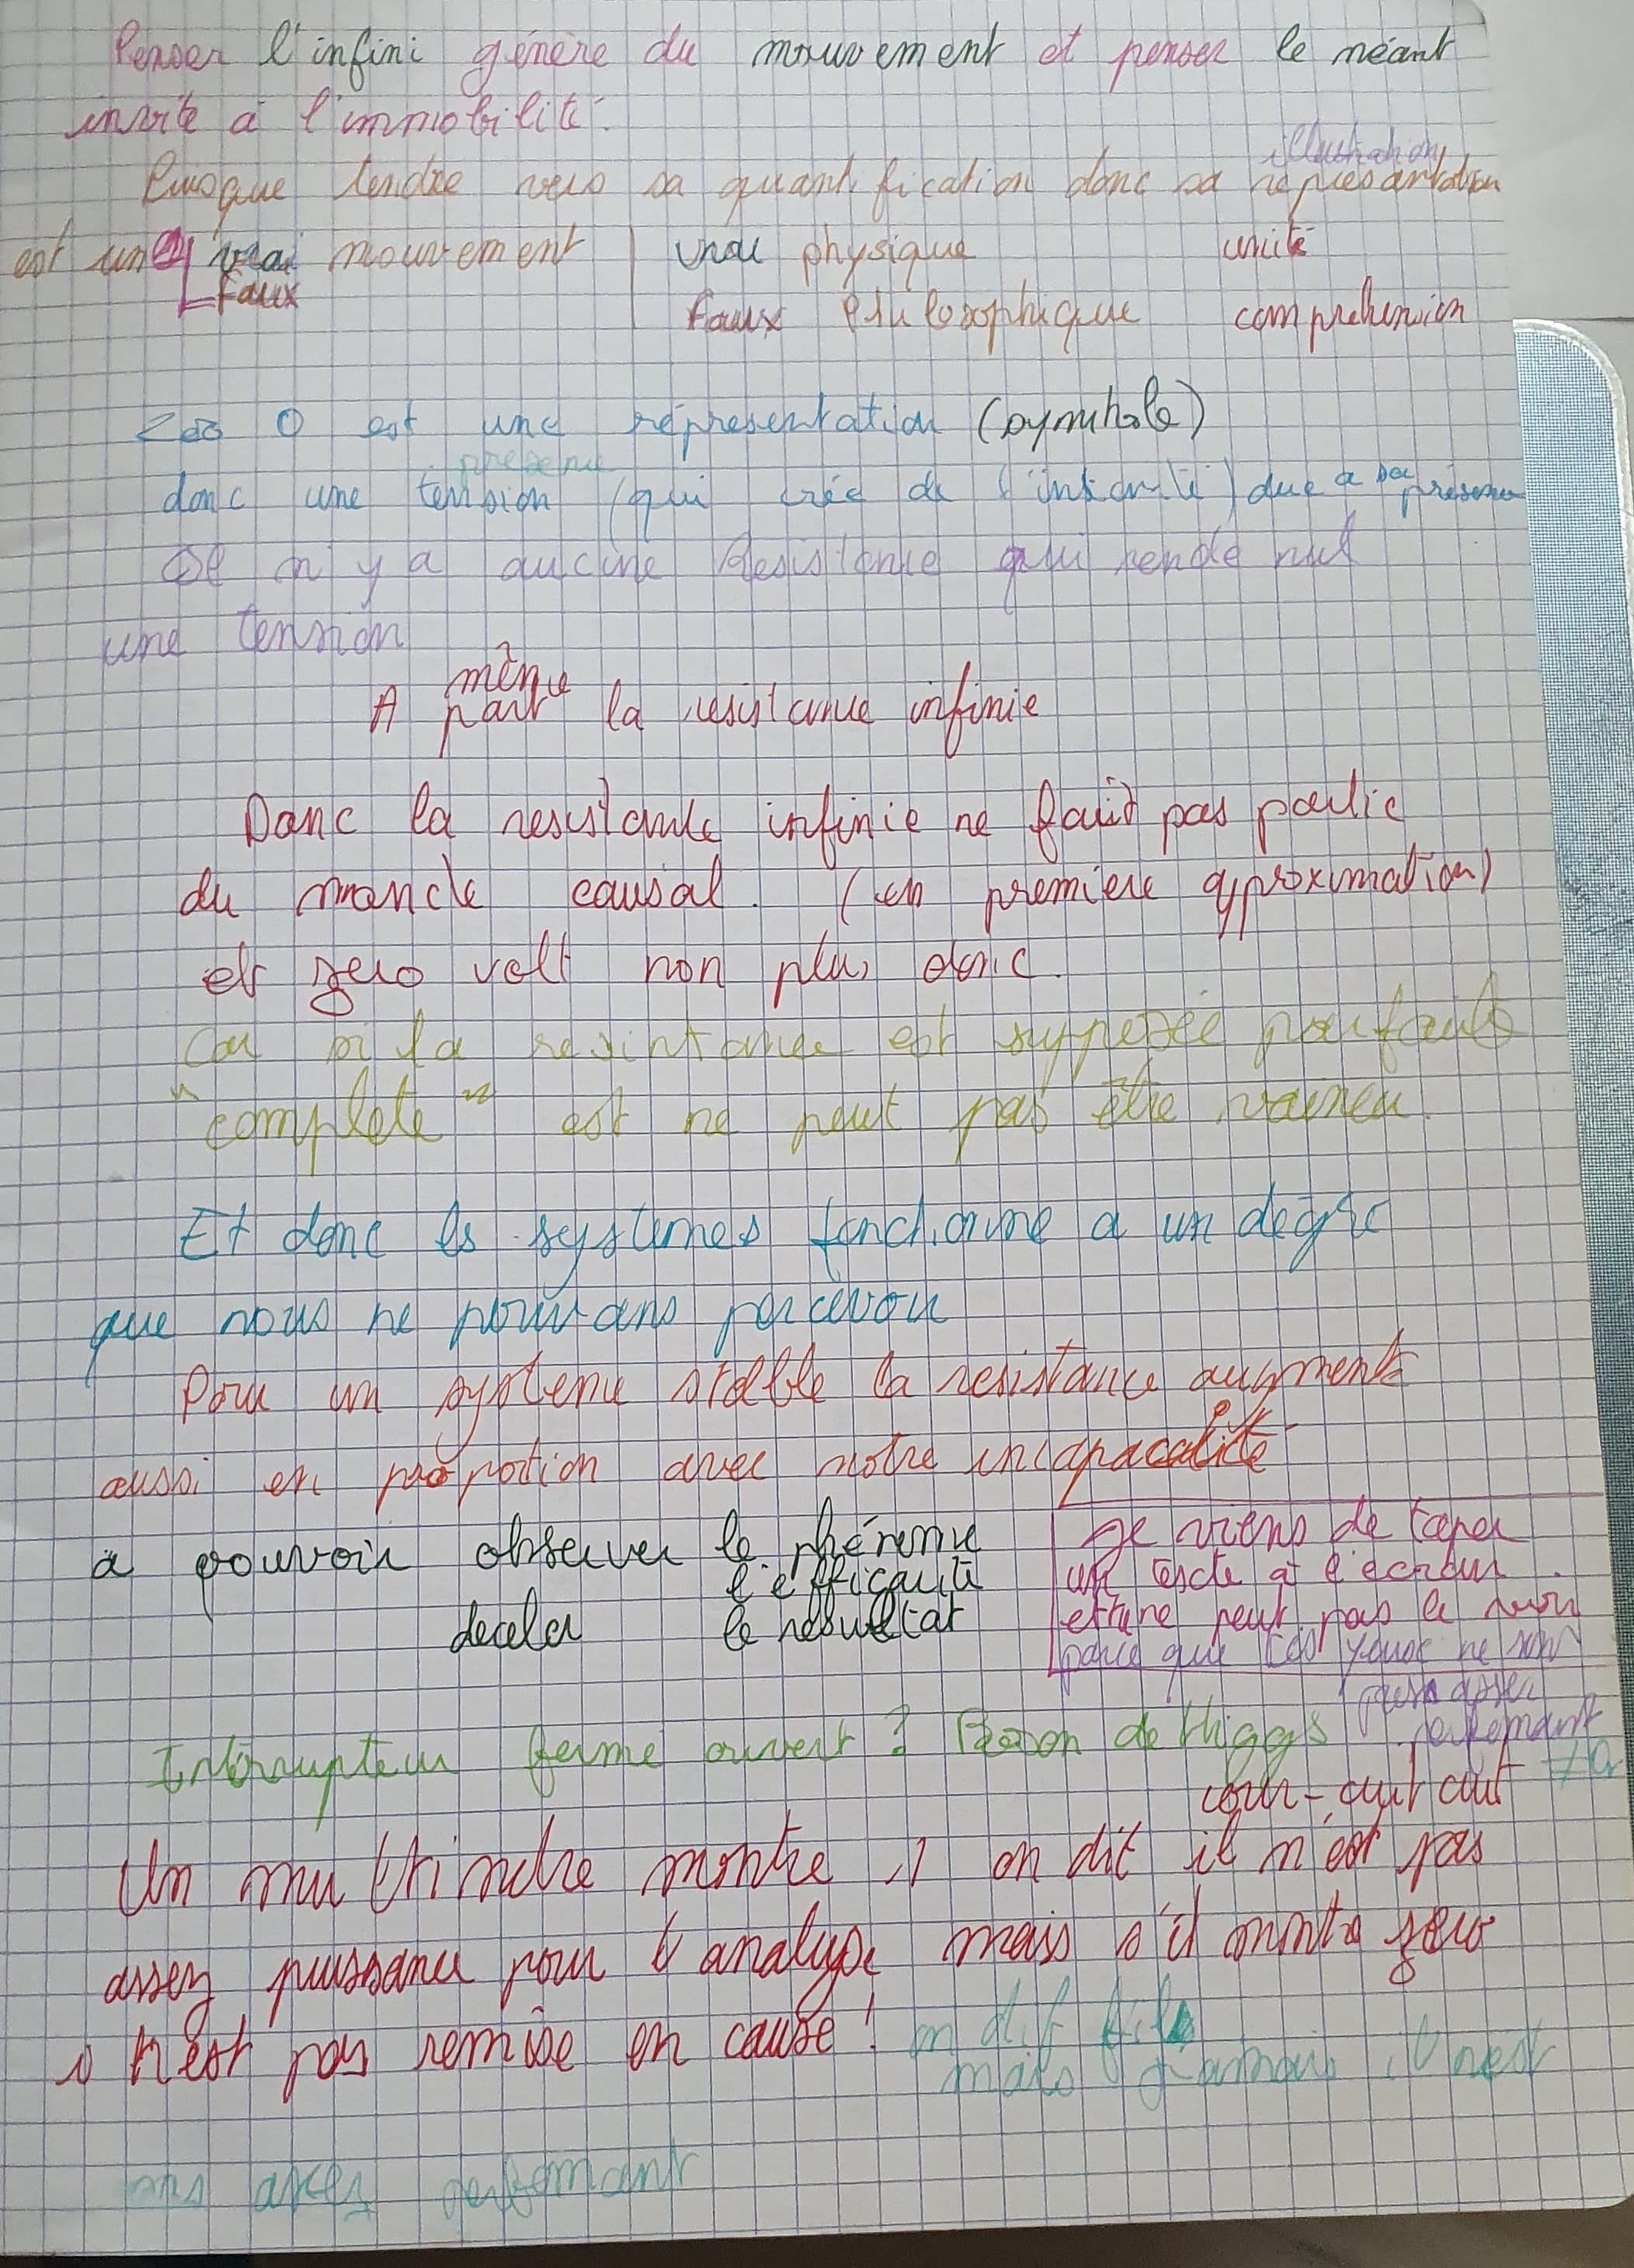 Penser l'infini génère du mouvement et penser le néant
invite à l'immobilité.
illustration
Puisque tendre vers sa quantification donc sa représentation
est un vrai mouvement | vrai physique unité
Faux | Faux philosophique compréhension
0 est une répresentation (symbole)
présence
donc une tension (qui crée de l') due a sa présence
Il n'y a aucune Resistance qui rende nul
une tension
même
A part la resistance infinie
Donc la resistance infinie ne fait pas partie
du monde causal. (en premiere approximation)
et zero volt non plus donc.
Car si la resistance est supposée parfaite
"complete" est ne peut pas être vaincu.
Et donc les systemes fonctionne a un degré
que nous ne pouvons percevoir
Pour un systeme stable la resistance augmente
aussi en proportion avec notre incapacalité
a pouvoir observer le phénomene
l'efficacité
deceler le resultat
Je viens de taper
un texte à l'écran
et tu ne peut pas le voir
parce que tes yeux ne sont
pas assez
performant
Interrupteur fermé ouvert ? Boson de Higgs
cour-cuit cuit
Un multimètre montre 1 on dit il n'est pas
assez puissance pour l'analyse mais s'il montre zero
n'est pas remise en cause !
on dit
mais jamais il n'est
pas assez performant